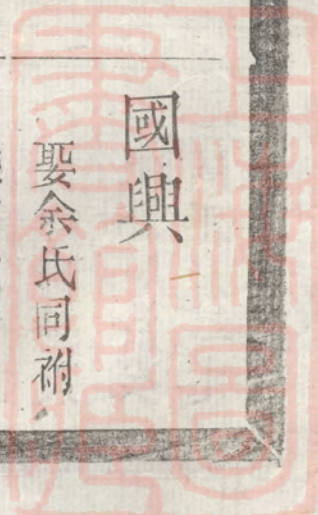 國興
娶余氏同祔